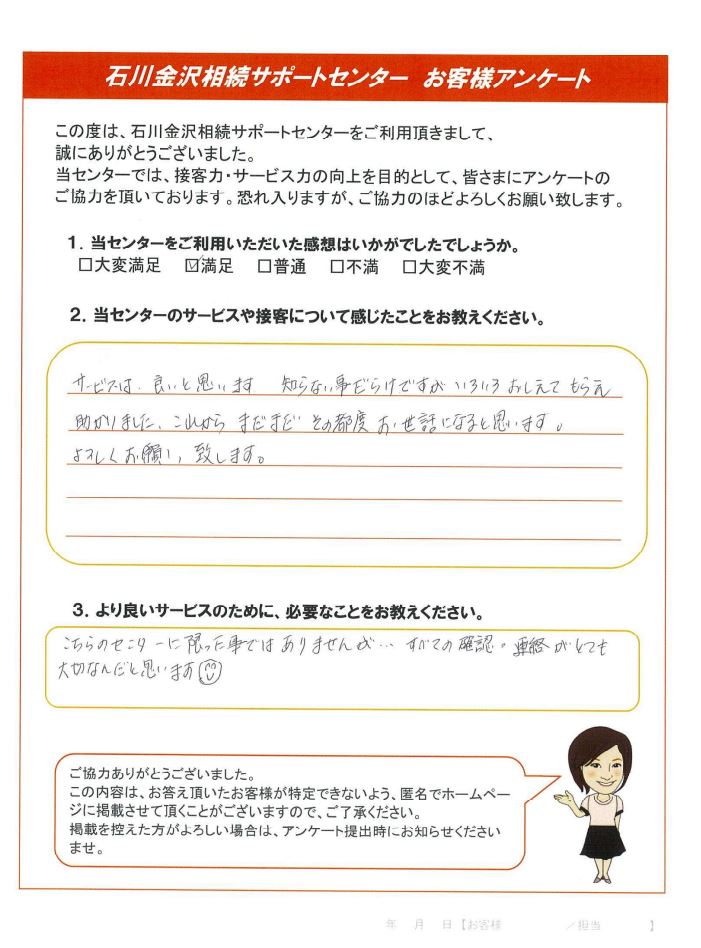 石川金沢相続サポートセンター お客様アンケート
この度は、石川金沢相続サポートセンターをご利用頂きまして、
誠にありがとうございました。
当センターでは、接客力・サービス力の向上を目的として、皆さまにアンケートの
ご協力を頂いております。恐れ入りますが、ご協力のほどよろしくお願い致します。
1．当センターをご利用いただいた感想はいかがでしたでしょうか。
□大変満足 ☑満足 □普通 □不満 □大変不満
2．当センターのサービスや接客について感じたことをお教えください。
サービスは、良いと思います 知らない事だらけですが いろいろ おしえて もらえ
助かりました、これから まだまだ その都度 お世話になると思います。
よろしくお願い致します。
3．より良いサービスのために、必要なことをお教えください。
こちらのセンターに限った事では ありませんが… すべての確認・連絡がとても
大切なんだと思います
ご協力ありがとうございました。
この内容は、お答え頂いたお客様が特定できないよう、匿名でホームペー
ジに掲載させて頂くことがございますので、ご了承ください。
掲載を控えた方がよろしい場合は、アンケート提出時にお知らせください
ませ。
年 月 日【お客様 ／担当 】